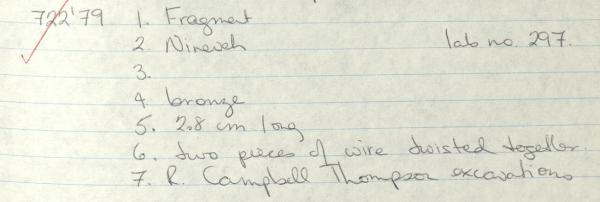 722'79 1. Fragment
2 Nineveh lab no. 297.
3.
4. bronze
5. 2.8 cm long
6. two pieces of wire twisted together.
7. R. Campbell Thompson excavations